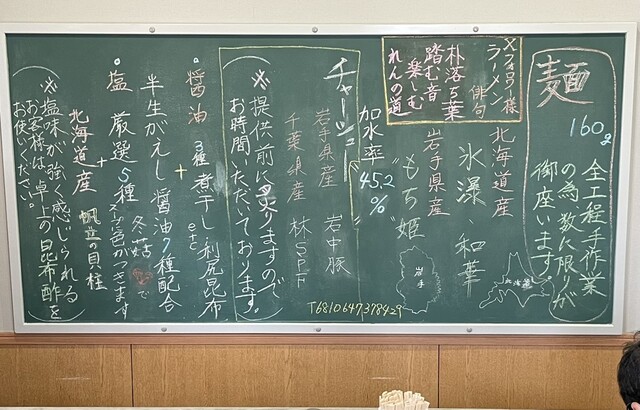 麺
160g
全工程手作業
の為数に限りが
御座います。
メフォ弓様
ラーメン俳句
朴落ち葉
踏む音
楽しむ
れんの道
北海道産
氷瀑、和華
岩手県産
"もち姫"
加水率
45.2%
北海道
岩手
チャーシュー
岩手県産 岩中豚
千葉県産 林SPF
(※提供前に炙りますので
お時間いただいております。)
T6810647378429
醤油 3種煮干し、利尻昆布
+ etc
半生がえし醤油7種配合
塩 厳選5種 冬菇で
+ スープに色がつきます
北海道産 帆立の貝柱
(※塩味が強く感じられる
お客様は、卓上の昆布酢を
お使いください。)